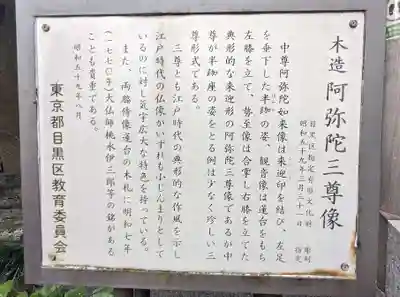 木造 阿弥陀三尊像
目黒区指定有形文化財 彫刻
昭和五十九年三月三十一日 指定
中尊阿弥陀如来像は来迎印を結び、左足
を垂下した半跏の姿、観音像は蓮台をもち
左膝を立て、勢至像は合掌し右膝を立てた
典形的な来迎形の阿弥陀三尊像であるが中
尊が半跏座の姿をとる例は少なく珍しい三
尊形式である。
三尊とも江戸時代の典形的な作風を示し
江戸時代の仏像がいずれも小じんまりとして
いるのに対し気宇広大な特色を持っている。
また、両脇侍像蓮台の木札に明和七年
(一七七〇年)大仏師桃水伊三郎等の銘がある
ことも貴重である。
昭和五十九年八月
東京都目黒区教育委員会